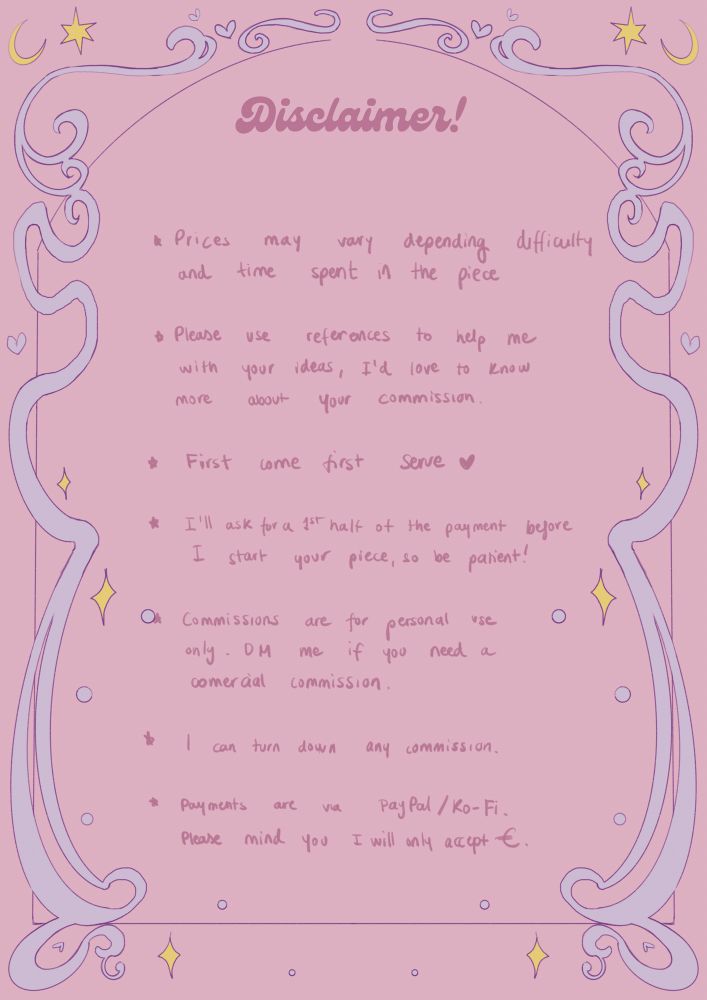 Disclaimer!
Prices may vary depending difficulty
and time spent in the piece
Please use references to help me
with your ideas, I'd love to know
more about your commission.
First come first serve ♥
I'll ask for a 1st half of the payment before
I start your piece, so be patient!
Commissions are for personal use
only. DM me if you need a
comercial commission.
I can turn down any commission.
Payments are via PayPal/Ko-Fi.
Please mind you I will only accept €.